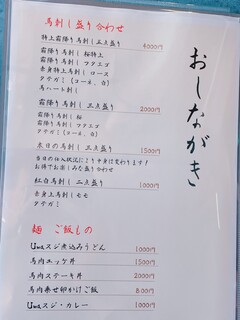 おしながき
馬刺し盛り合わせ
特上霜降り馬刺し五点盛り 4000円
霜降り馬刺し桜特上
霜降り馬刺しフタエゴ
赤身特上馬刺し ロース
タテガミ(コーネ、白)
馬ハート刺し
霜降り馬刺し三点盛り 2000円
霜降り馬刺し 桜
霜降り馬刺し フタエゴ
タテガミ(コーネ、白)
本日の馬刺し三点盛り 1500円
当日の仕入状況により中身は変わります!
お得でお楽しみな盛り合わせ
紅白馬刺し二点盛り 1000円
赤身上馬刺し モモ
タテガミ
麺 ご飯もの
Umaスジ煮込みうどん 1000円
馬肉ユッケ丼 1500円
馬肉ステーキ丼 2000円
馬肉乗せ卵かけご飯 800円
Umaスジ・カレー 1000円